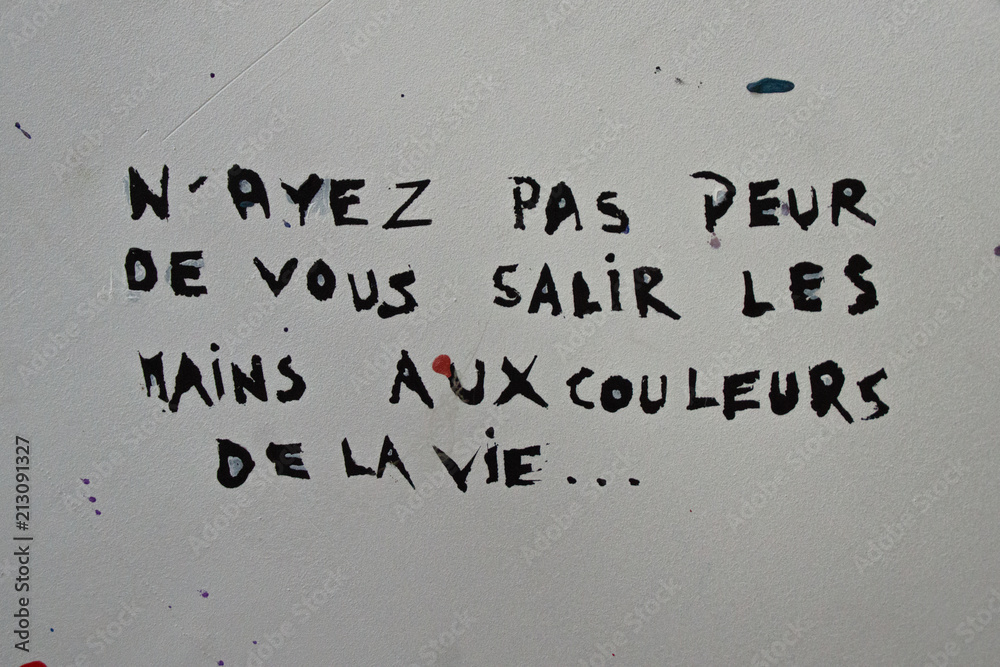 N'AYEZ PAS PEUR
DE VOUS SALIR LES
MAINS AUX COULEURS
DE LA VIE...
Adobe Stock | #213091327